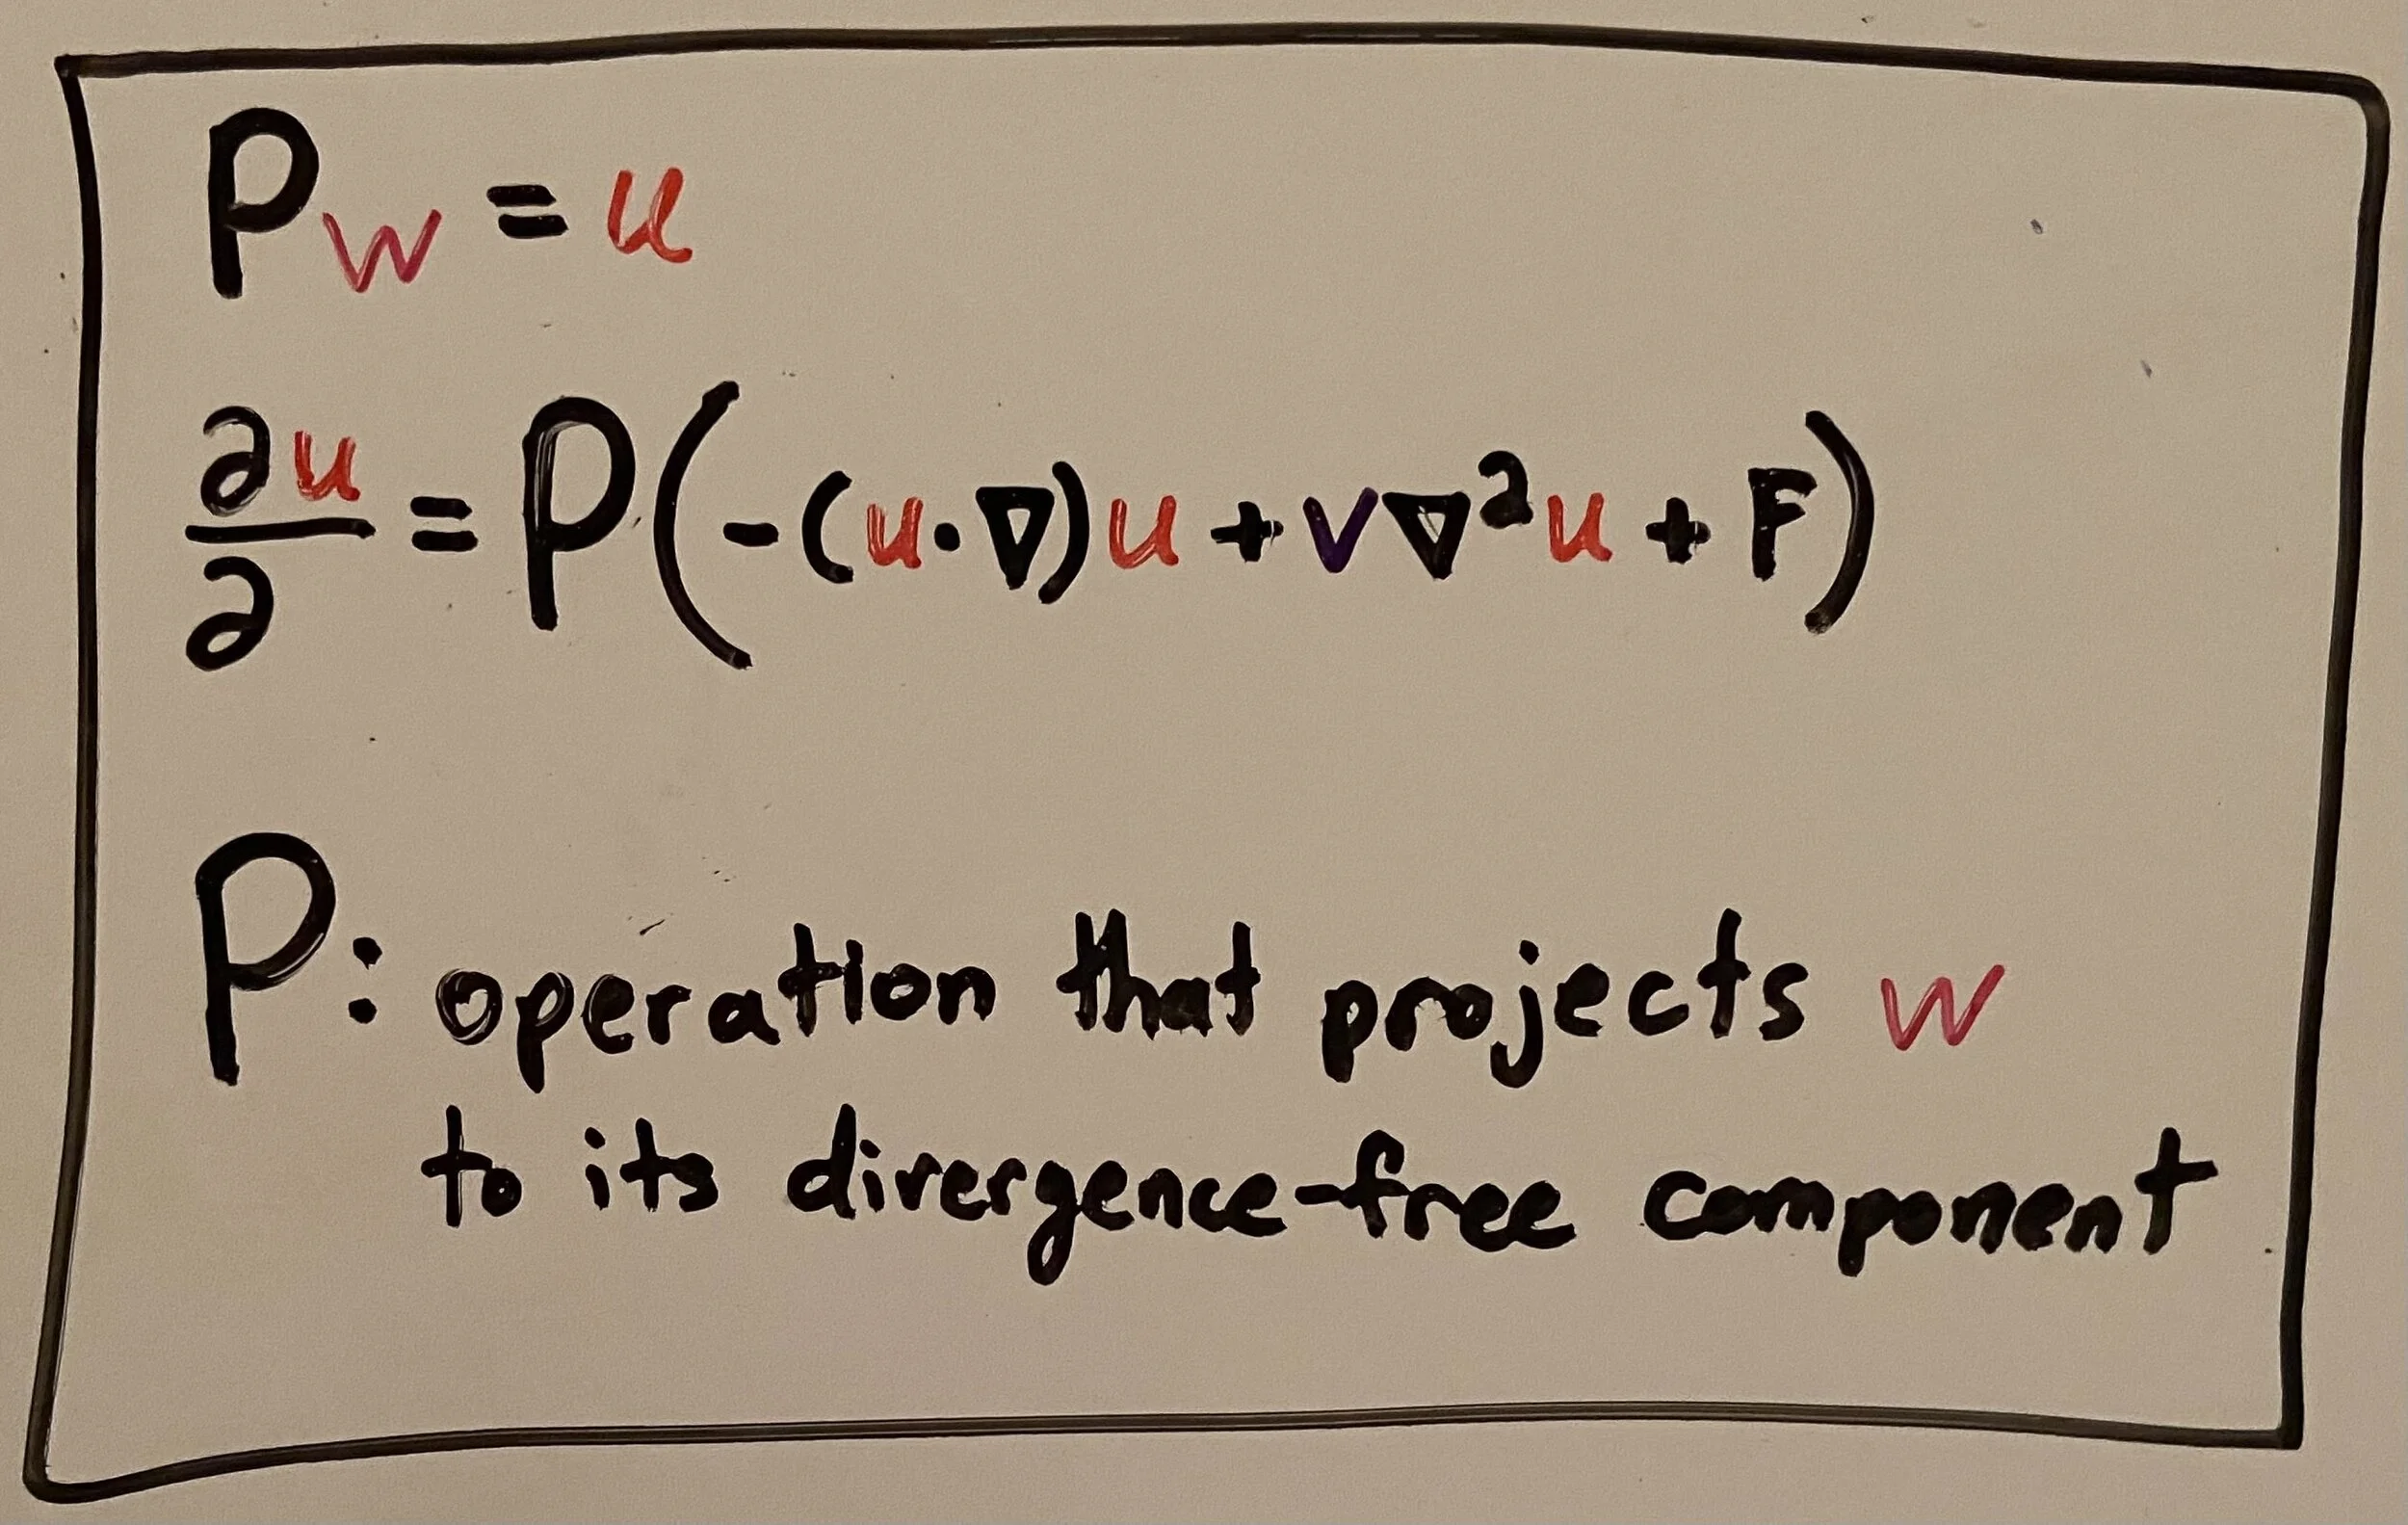 Pw = u
∂u/∂ = P(-(u·∇)u + v∇²u + F)
P: operation that projects w
to its divergence-free component